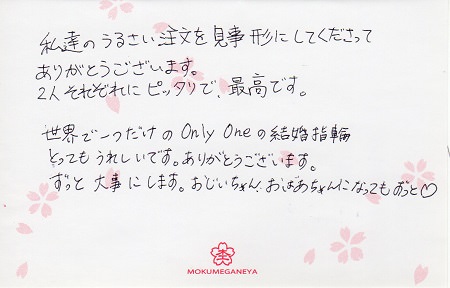 私達のうるさい注文を見事形にしてくださって
ありがとうございます。
2人それぞれにピッタリで、最高です。
世界で一つだけのOnly Oneの結婚指輪
とってもうれしいです。ありがとうございます。
ずっと大事にします。おじいちゃん、おばあちゃんになってもずっと♡
MOKUMEGANEYA